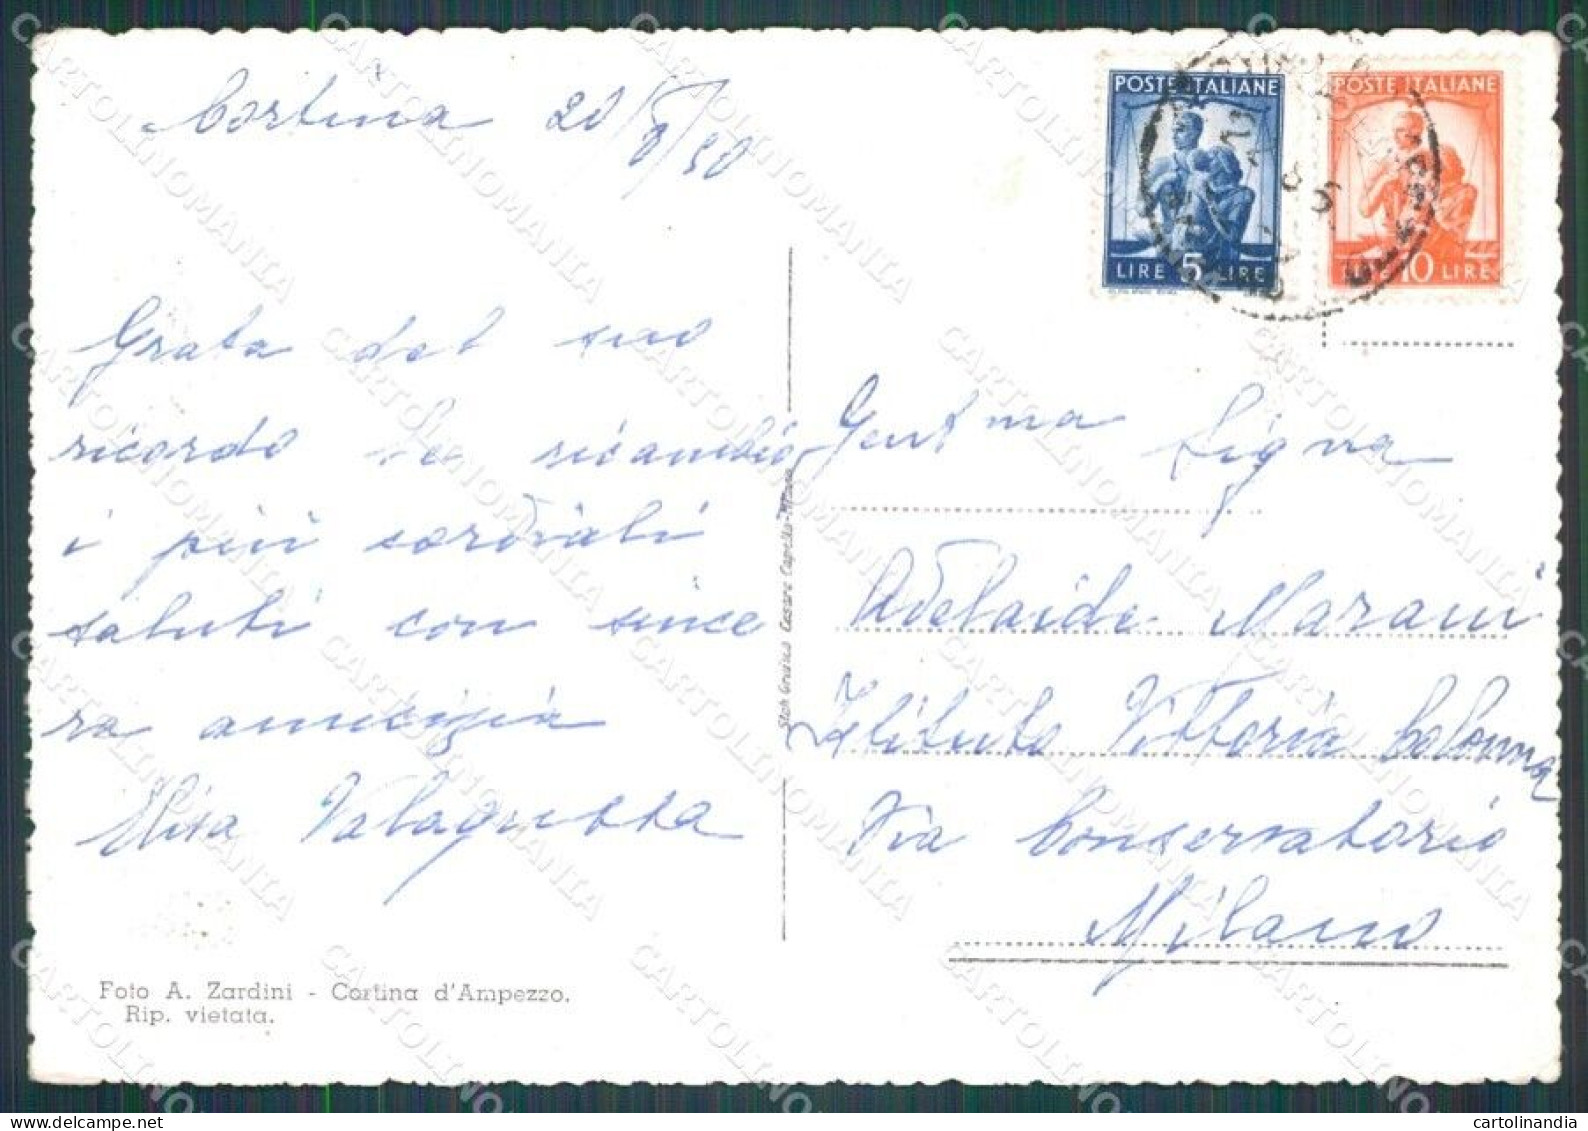 Cortina 20/8/50
POSTE ITALIANE
LIRE 5 LIRE
POSTE ITALIANE
LIRE 10 LIRE
Grata del suo
ricordo le ricambio
i più cordiali
saluti con since
ra amicizia
Elisa Valagussa
Gent.ma Sig.na
Adelaide Marani
Istituto Vittoria Colonna
Via Conservatorio
Milano
Foto A. Zardini - Cortina d'Ampezzo.
Rip. vietata.
Stab Grafico Cesare Capello-Milano
CARTOLINOMANIA
delcampe.net
cartolinandia